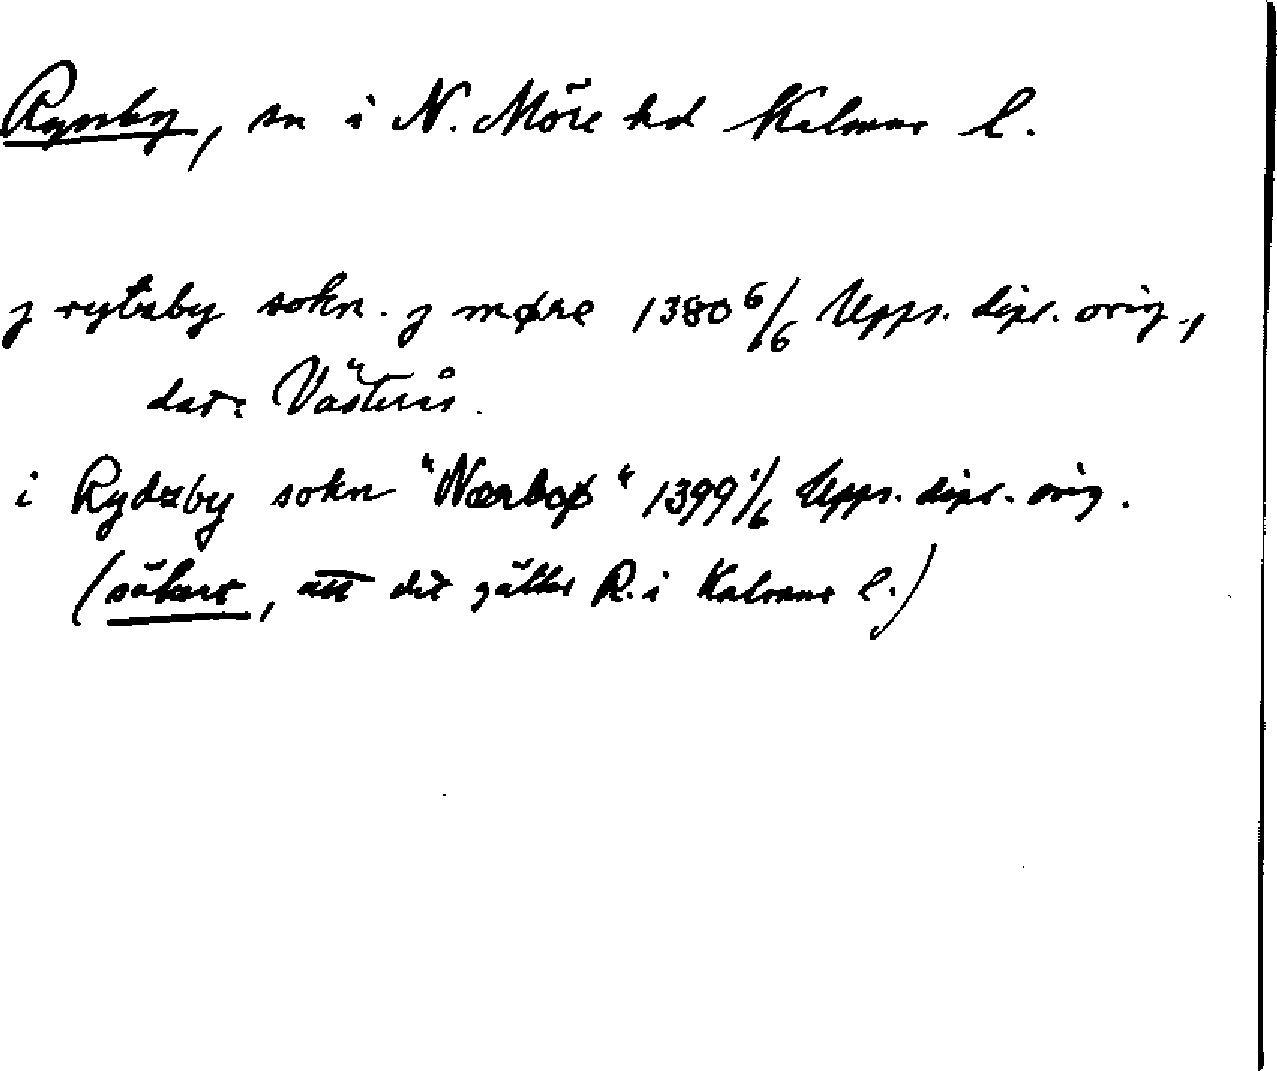 Ryssby, sn i N. Möre hd Kalmar l.
j rytzby sokn. j møre 1380 6/6 Upps. dipl. orig.,
dat: Västerås.
i Rydzby sokn "Nærboø" 1399 1/6 Upps. dipl. orig.
(säkert, att det gäller R. i Kalmar l.)